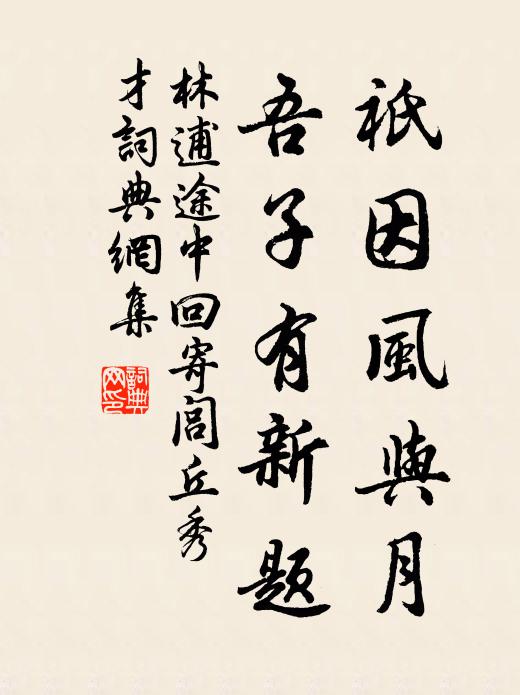 祇因風與月
吾子有新題
林逋途中回寄閭丘秀
才詞典網集
詞典
网印